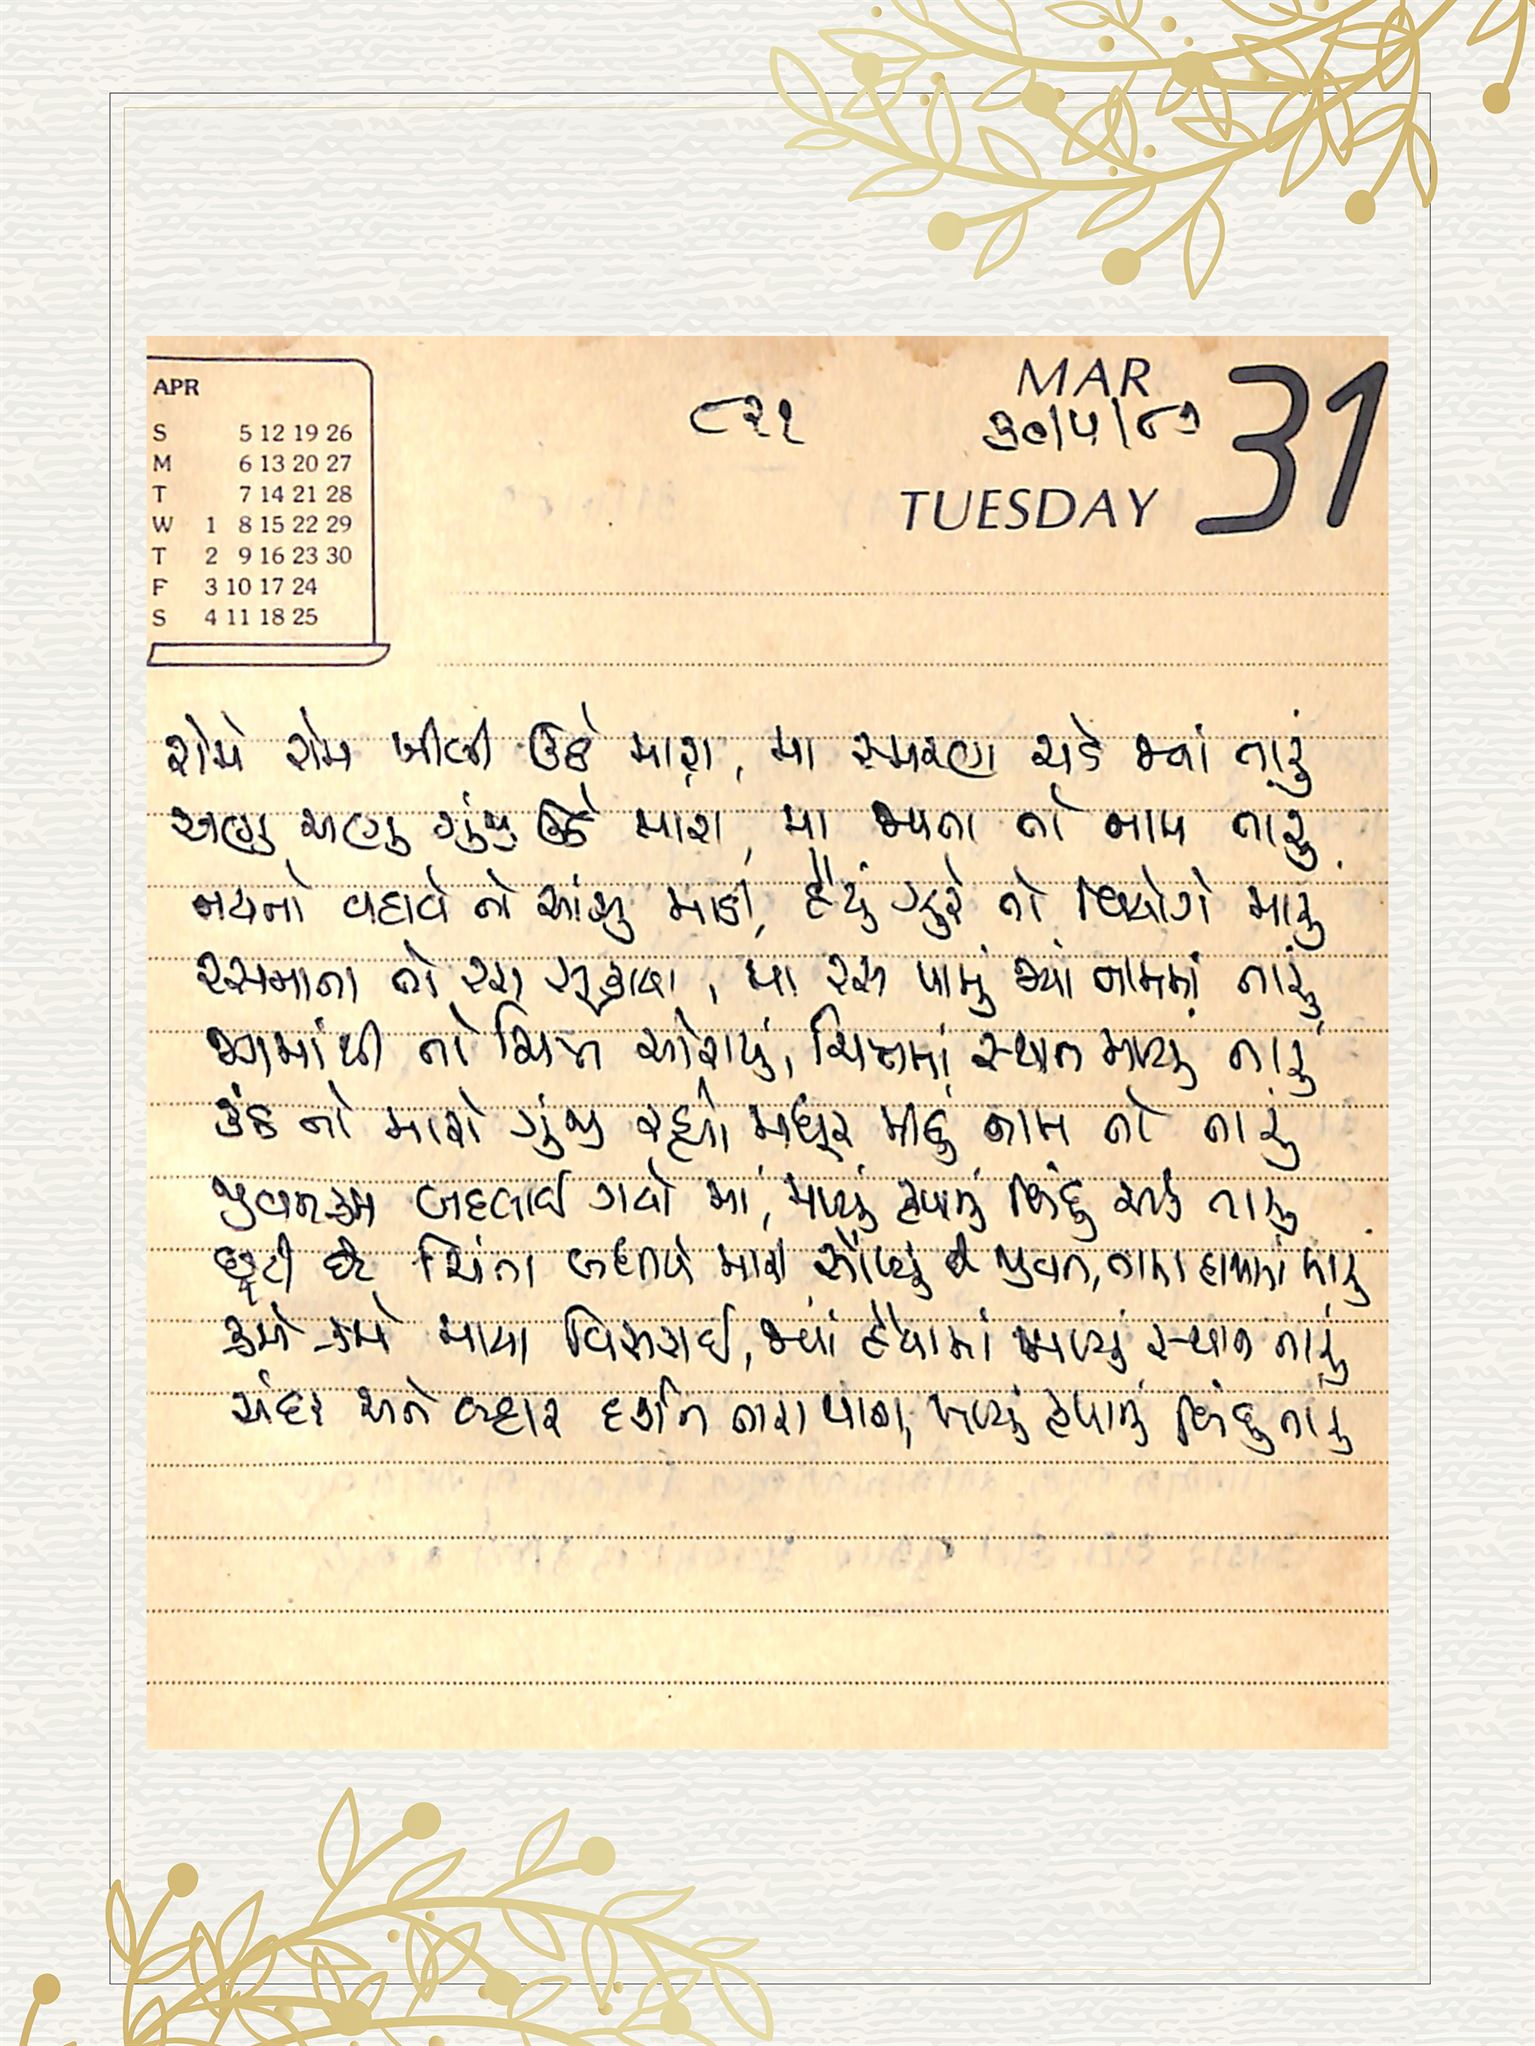 APR
S 5 12 19 26
M 6 13 20 27
T 7 14 21 28
W 1 8 15 22 29
T 2 9 16 23 30
F 3 10 17 24
S 4 11 18 25
૮૨૧
MAR 31
૩૦/૫/૮૭
TUESDAY
રોમે રોમ ખીલી ઊઠે મારા, મા સ્મરણ ચડે જ્યાં તારું
અણુ અણુ ગુંજી ઊઠે મારા, મા જપતા તો જાપ તારું
નયનો વહાવે તો આંસુ માડી, હૈયું ઝુરે તો વિયોગે મારું
રસમાતા તો રસ સૂકાયા, મા રસ પામું જ્યાં નામમાં તારું
આમાંથી તો ચિત્ત ઓસર્યું, ચિત્તમાં સ્થાન માગ્યું તારું
કંઠ તો મારો ગુંજી રહ્યો મધુર મીઠું નામ તો તારું
જીવનક્રમ બદલાઈ ગયો મા, મળ્યું હેયાનું બિંદુ એક તારું
છૂટી છે ચિંતા બધીયે મારી સોંપ્યું છે જીવન, તારા હાથમાં મારું
ક્રમે ક્રમે માયા વિસરાઈ, જ્યાં હૈયામાં આપ્યું સ્થાન તારું
અંદર અને બહાર દર્શન તારા થાતા, મળ્યું હેયાનું બિંદુ તારું